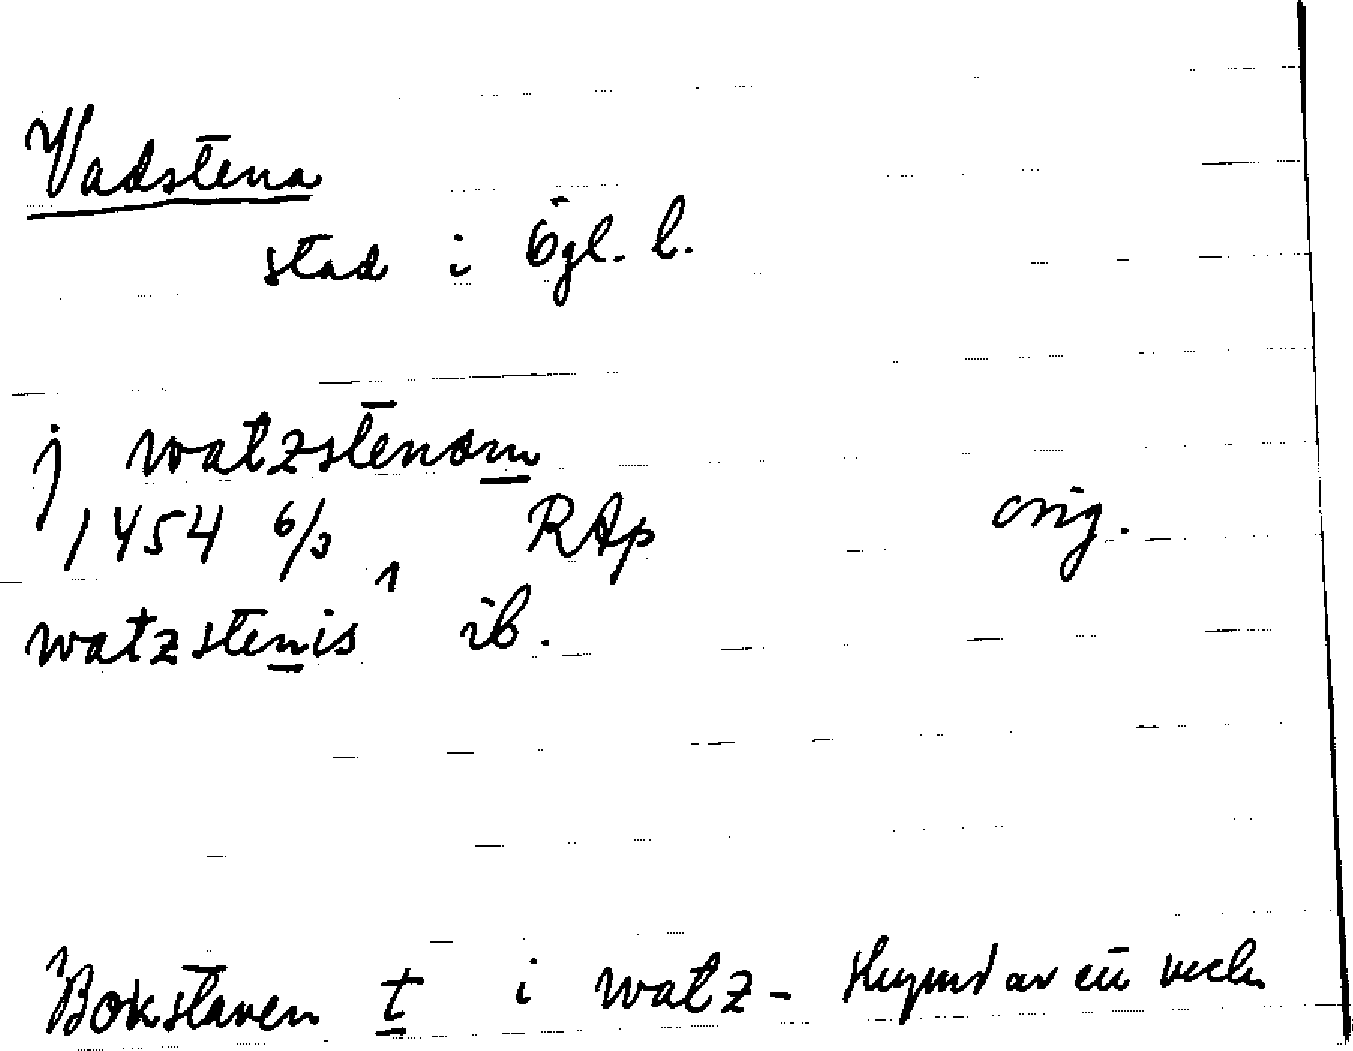 Vadstena
stad i Ögl. l.
j watzstenom
1454 6/3 RAp orig.
watzstenis 1 ib.
1 Bokstaven t i watz - skymd av en veck